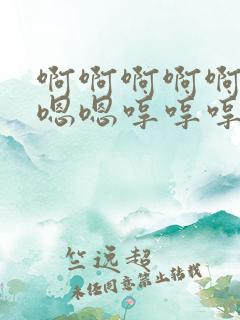 啊啊啊啊啊
嗯嗯哼哼哼
竺远超
未经同意禁止转载